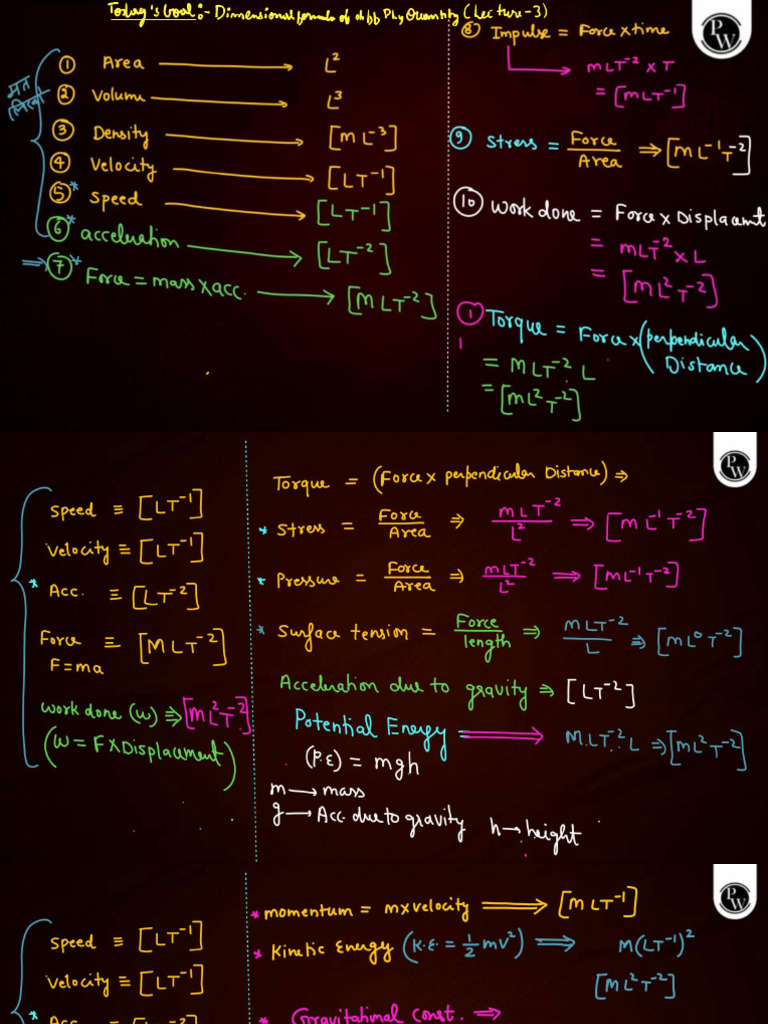 Today's Goal:- Dimensional formula of diff Phy Quantity (Lecture-3)
मत लिखो
① Area → L²
② Volume → L³
③ Density → [ML⁻³]
④ Velocity → [LT⁻¹]
⑤* Speed → [LT⁻¹]
⑥* acceleration → [LT⁻²]
⇒ ⑦* Force = mass x acc. → [MLT⁻²]
PW
⑧ Impulse = Force x time
→ MLT⁻² x T
= [MLT⁻¹]
⑨ Stress = Force/Area ⇒ [ML⁻¹T⁻²]
⑩ Work done = Force x Displacemt
= MLT⁻² x L
= [ML²T⁻²]
11 Torque = Force x (perpendicular Distance)
= MLT⁻² L
= [ML²T⁻²]
PW
Speed ≡ [LT⁻¹]
Velocity ≡ [LT⁻¹]
* Acc. ≡ [LT⁻²]
Force ≡ [MLT⁻²]
F = ma
Work done (W) ⇒ [ML²T⁻²]
(W = F x Displacement)
Torque = (Force x perpendicular Distance) ⇒
* Stress = Force/Area ⇒ MLT⁻²/L² ⇒ [ML⁻¹T⁻²]
* Pressure = Force/Area ⇒ MLT⁻²/L² ⇒ [ML⁻¹T⁻²]
* Surface tension = Force/length ⇒ MLT⁻²/L ⇒ [ML⁰T⁻²]
Acceleration due to gravity ⇒ [LT⁻²]
Potential Energy ⇒ M.LT⁻².L ⇒ [ML²T⁻²]
(P.E) = mgh
m → mass
g → Acc. due to gravity h → height
PW
Speed ≡ [LT⁻¹]
Velocity ≡ [LT⁻¹]
* Acc. ≡ [LT⁻²]
* momentum = m x velocity ⇒ [MLT⁻¹]
* Kinetic Energy (K.E = ½ mv²) ⇒ M(LT⁻¹)²
[ML²T⁻²]
* Gravitational Const. ⇒